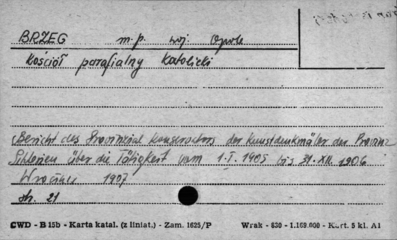 BRZEG m.p. woj. Opole
Kościół parafialny katolicki
(Bericht des Provinzial Konservators der Kunstdenkmäler der Provinz
Schlesien über die Tätigkeit vom 1.I.1905 bis 31.XII.1906
Wrocław 1907
str. 21
CWD - B 15b - Karta katal. (z liniat.) - Zam. 1625/P Wrak - 630 - 1.169.000 - Kart. 5 kl. A1